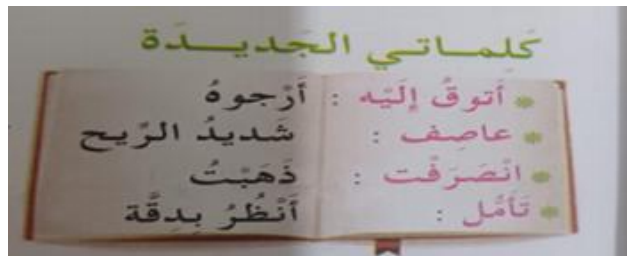 كَلِمــاتــي الـجَـديــدَة
* أَتوقُ إِلَيْه : أَرْجوهُ
* عاصِف : شَديدُ الرّيح
* انْصَرَفْت : ذَهَبْتُ
* تَأَمَّل : أَنْظُرُ بِدِقَّة